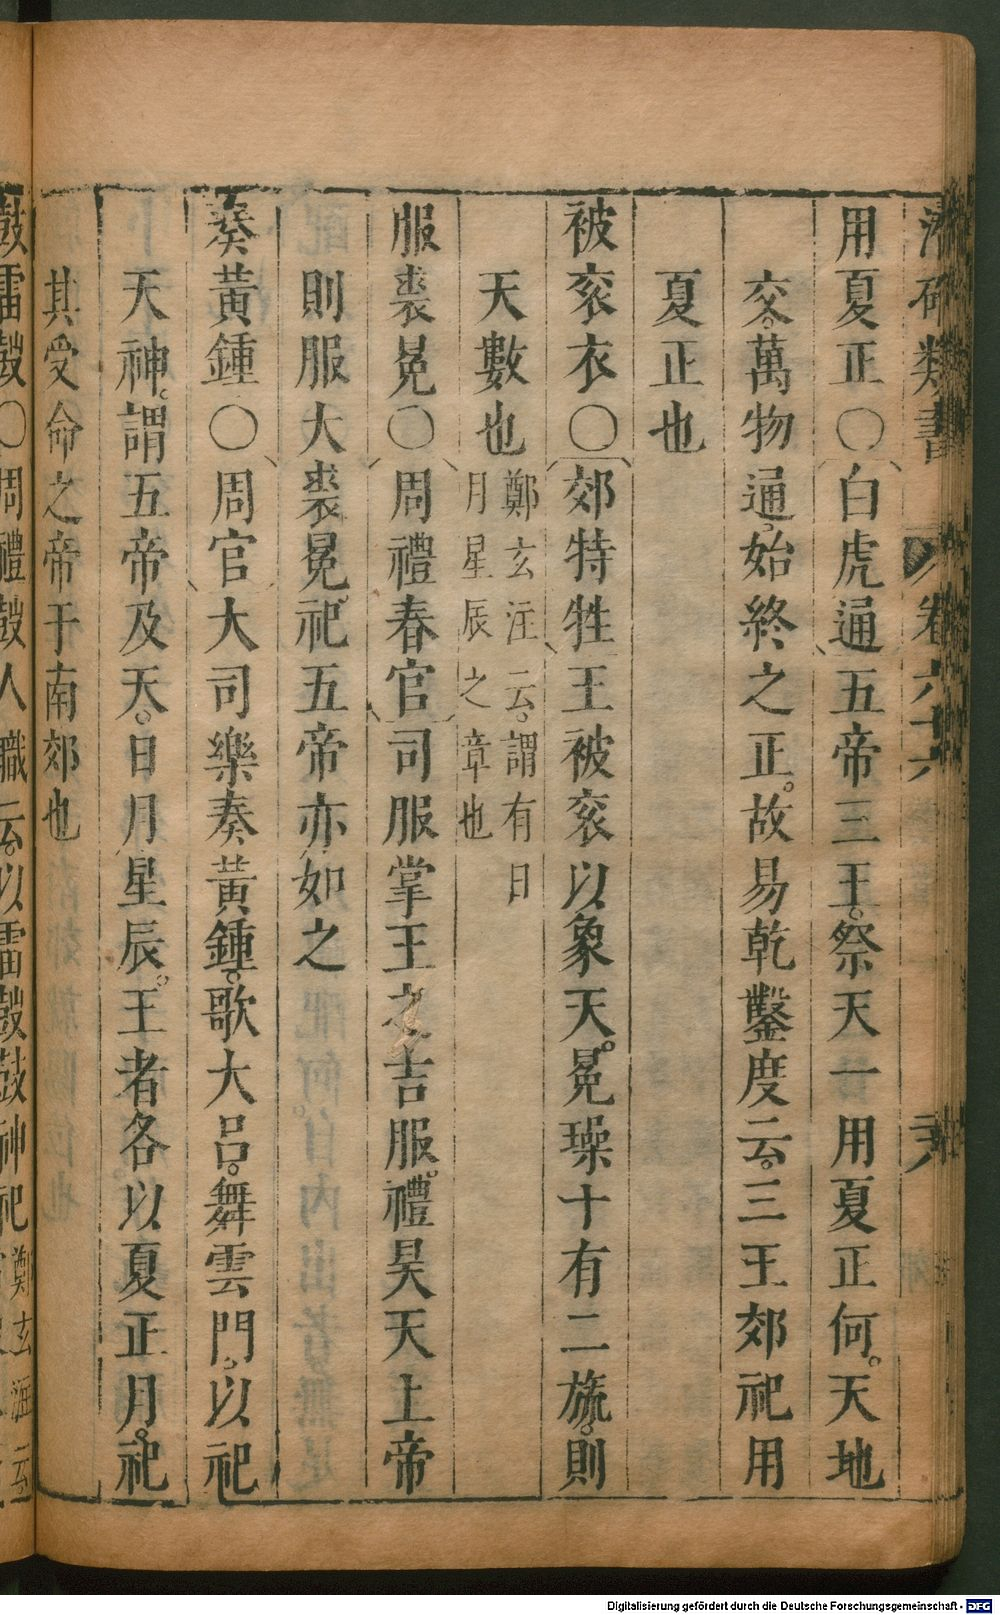 類書 卷六
用夏正○白虎通五帝三王祭天一用夏正何。天地
交。萬物通。始終之正。故易乾鑿度云。三王郊祀用
夏正也
被衮衣○郊特牲王被衮以象天。冕璪十有二旒。則
天數也鄭玄注云。謂有日
月星辰之章也
服裘冕○周禮春官司服掌王之吉服。禮昊天上帝
則服大裘冕。祀五帝亦如之
奏黃鍾○周官大司樂奏黃鍾。歌大呂。舞雲門。以祀
天神。謂五帝及天。日月星辰。王者各以夏正月。祀
其受命之帝于南郊也
鼓雷鼓○周禮鼓人職云。以雷鼓鼓神祀鄭玄注云
Digitalisierung gefördert durch die Deutsche Forschungsgemeinschaft - DFG